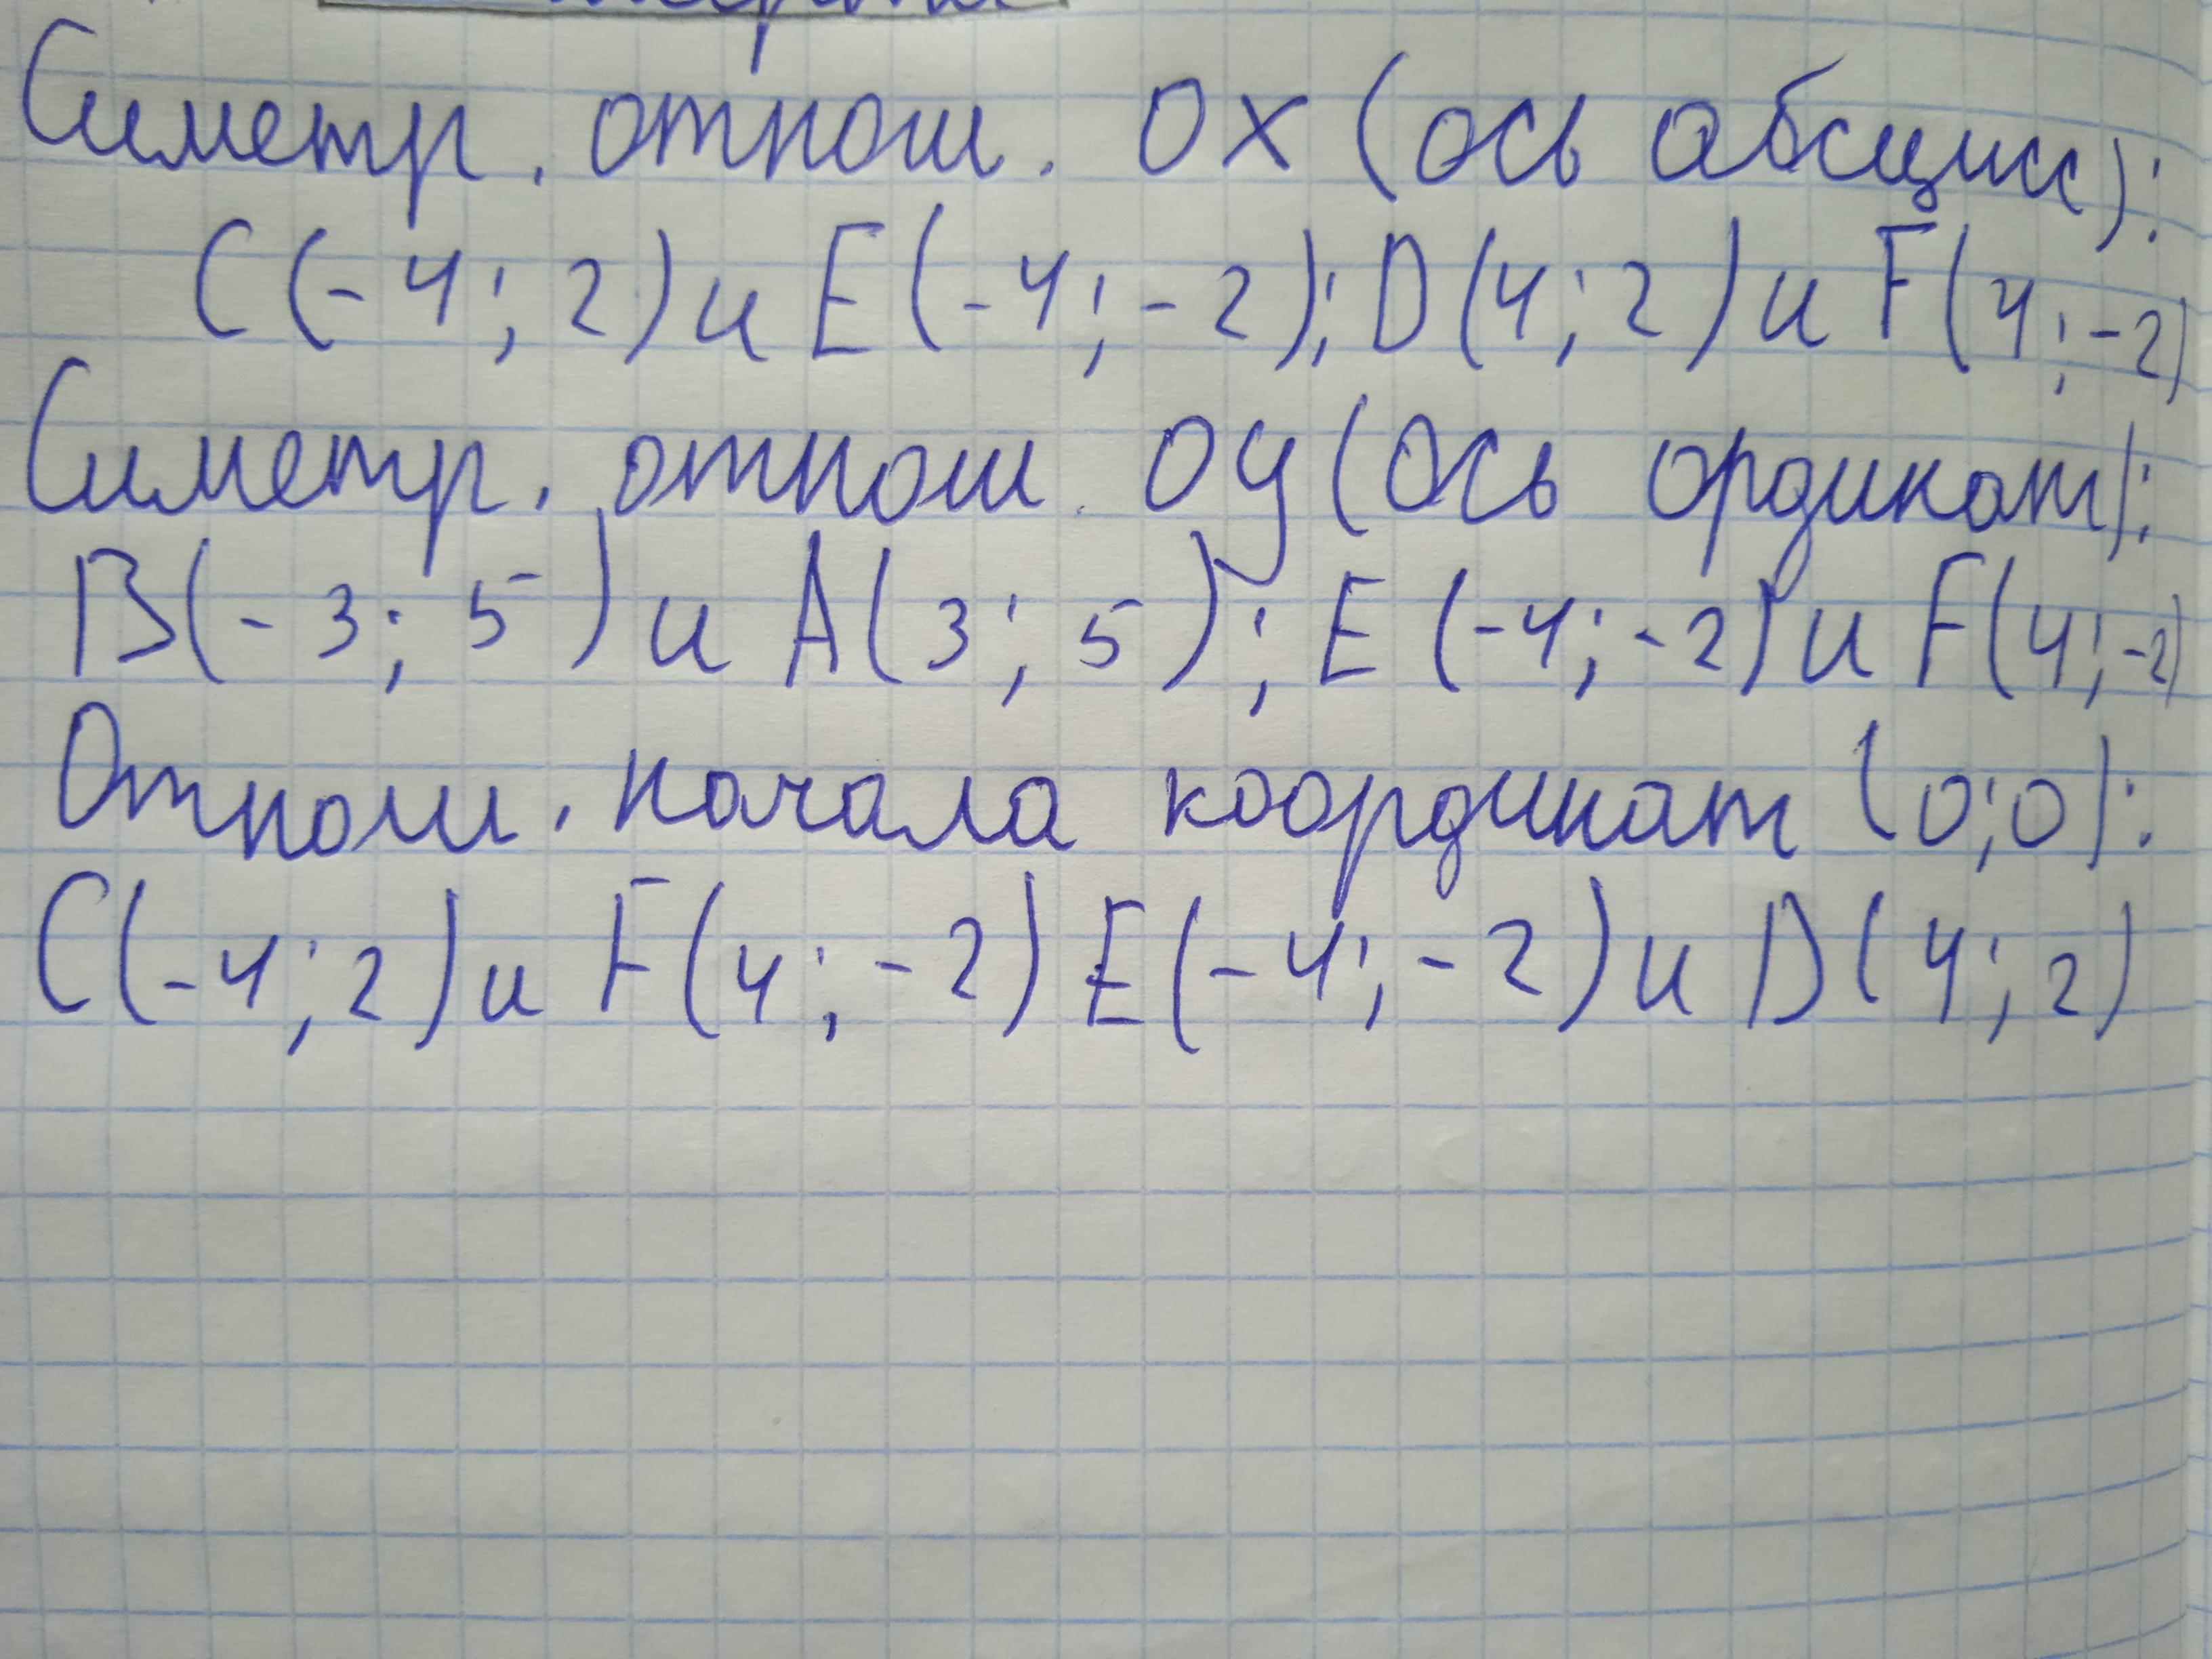 Симетр. отнош. OX (ось абсцисс):
C(-4; 2) и E(-4; -2); D(4; 2) и F(4; -2)
Симетр. отнош. OY (Ось ординат):
B(-3; 5) и A(3; 5); E(-4; -2) и F(4; -2)
Отнош. начала координат (0;0):
C(-4; 2) и F(4; -2) E(-4; -2) и D(4; 2)